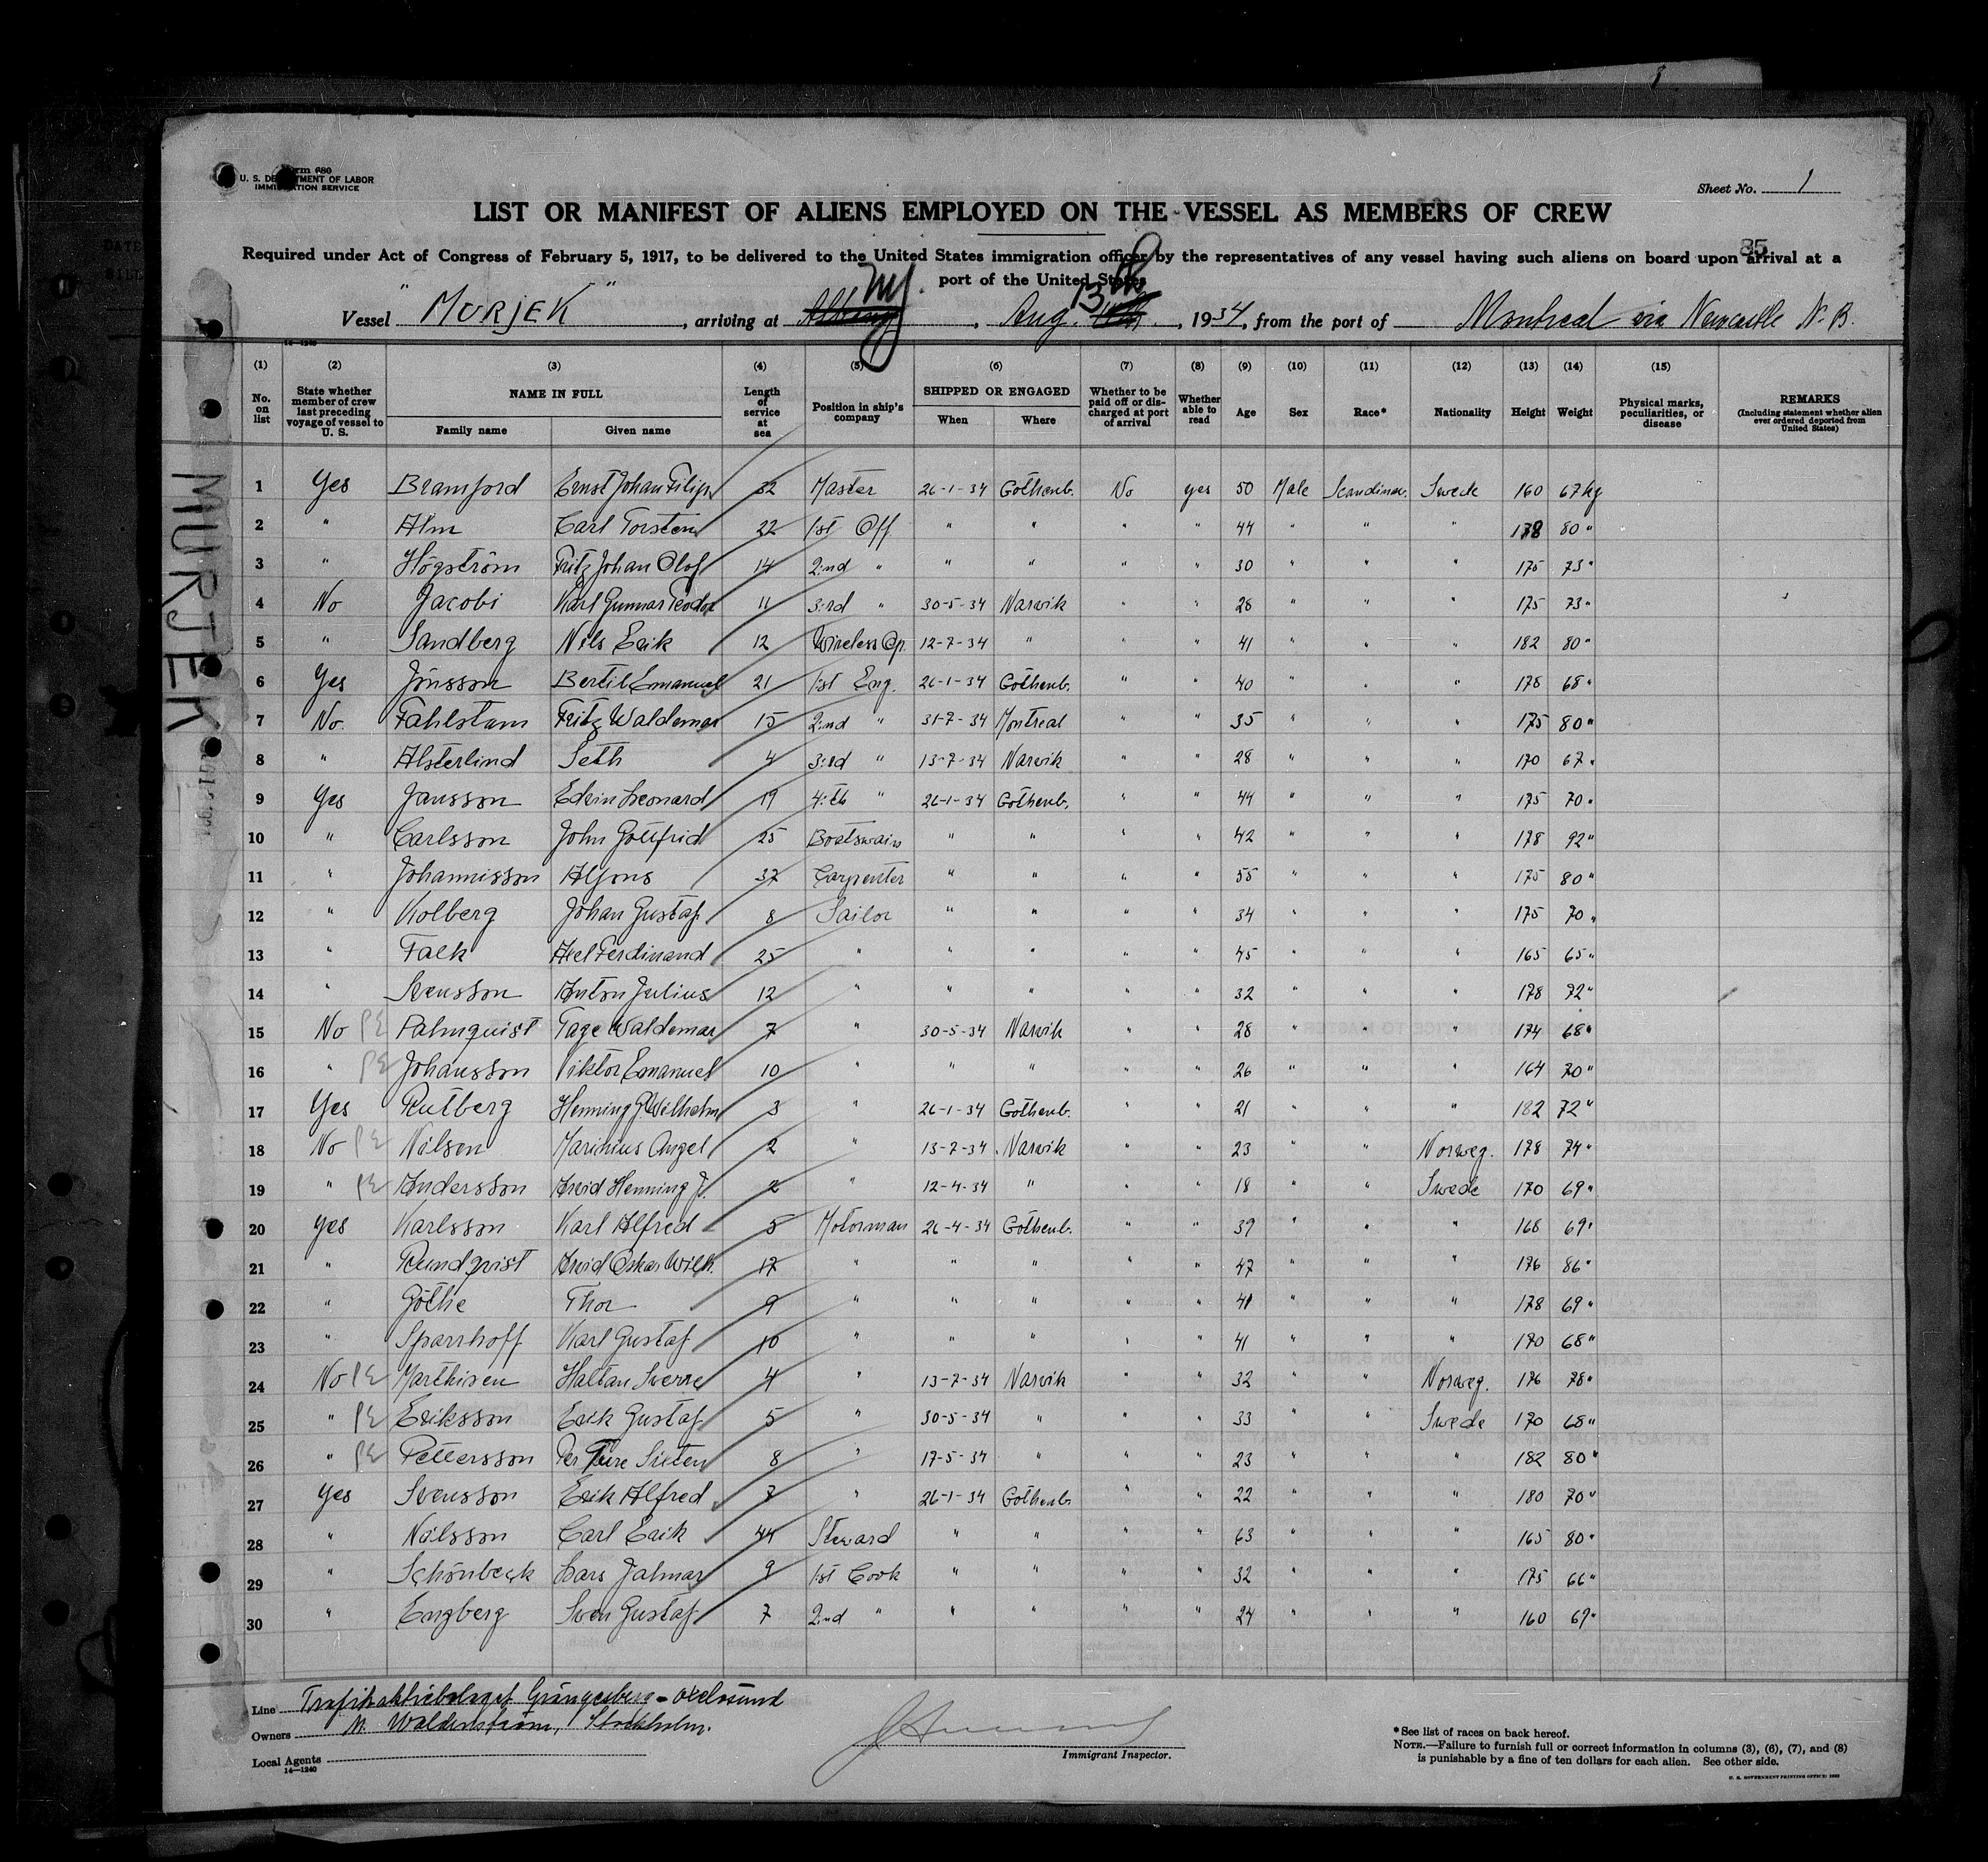 Form 680
U. S. DEPARTMENT OF LABOR
IMMIGRATION SERVICE
Sheet No. 1
LIST OR MANIFEST OF ALIENS EMPLOYED ON THE VESSEL AS MEMBERS OF CREW
85
Required under Act of Congress of February 5, 1917, to be delivered to the United States immigration officer by the representatives of any vessel having such aliens on board upon arrival at a
port of the United States
Vessel "MURJEK", arriving at Albany NY., Aug. 13th, 1934, from the port of Montreal via Newcastle N.B.
14—1240
(1) (2) (3) (4) (5) (6) (7) (8) (9) (10) (11) (12) (13) (14) (15)
No. on list | State whether member of crew last preceding voyage of vessel to U. S. | NAME IN FULL Family name Given name | Length of service at sea | Position in ship's company | SHIPPED OR ENGAGED When Where | Whether to be paid off or discharged at port of arrival | Whether able to read | Age | Sex | Race* | Nationality | Height | Weight | Physical marks, peculiarities, or disease | REMARKS (Including statement whether alien ever ordered deported from United States)
1 Yes Bramford Ernst Johan Filip 32 Master 26-1-34 Gothenb. No yes 50 Male Scandinav. Swede 160 67 kg
2 " Alm Carl Torsten 22 1st Off " " " " 44 " " " 178 80 "
3 " Högström Fritz Johan Olof 14 2:nd " " " " " 30 " " " 175 73 "
4 No Jacobi Karl Gunnar Teodor 11 3:rd " 30-5-34 Narvik " " 28 " " " 175 73 "
5 " Sandberg Nils Erik 12 Wireless Op. 12-7-34 " " " 41 " " " 182 80 "
6 Yes Jönsson Bertil Emanuel 21 1st Eng. 26-1-34 Gothenb. " " 40 " " " 178 68 "
7 No. Fahlstam Fritz Waldemar 15 2:nd " 31-7-34 Montreal " " 35 " " " 175 80 "
8 " Alsterlind Seth 4 3:rd " 13-7-34 Narvik " " 28 " " " 170 67 "
9 Yes Jansson Edvin Leonard 19 4:th " 26-1-34 Gothenb. " " 44 " " " 175 70 "
10 " Carlsson John Gottfrid 25 Boatswain " " " " 42 " " " 178 92 "
11 " Johannisson Alfons 37 Carpenter " " " " 55 " " " 175 80 "
12 " Kolberg Johan Gustaf 8 Sailor " " " " 34 " " " 175 70 "
13 " Falk Axel Ferdinand 25 " " " " " 45 " " " 165 65 "
14 " Svensson Anton Julius 12 " " " " " 32 " " " 178 72 "
15 No Palmquist Tage Waldemar 7 " 30-5-34 Narvik " " 28 " " " 174 68 "
16 " Johansson Viktor Emanuel 10 " " " " " 26 " " " 164 70 "
17 Yes Rutberg Henning G. Wilhelm 3 " 26-1-34 Gothenb. " " 21 " " " 182 72 "
18 No Nilsen Marinius Angel 2 " 13-7-34 Narvik " " 23 " " Norweg. 178 74 "
19 " Andersson Arvid Henning J. 2 " 12-4-34 " " " 18 " " Swede 170 69 "
20 Yes Karlsson Karl Alfred 5 Motorman 26-4-34 Gothenb. " " 39 " " " 168 69 "
21 " Rundqvist Arvid Oskar Wilh. 17 " " " " " 47 " " " 176 86 "
22 " Göthe Thor 9 " " " " " 41 " " " 178 69 "
23 " Sparrhoff Karl Gustaf 10 " " " " " 41 " " " 170 68 "
24 No Marthisen Haltan Sverre 4 " 13-7-34 Narvik " " 32 " " Norweg. 176 78 "
25 " Eriksson Erik Gustaf 5 " 30-5-34 " " " 33 " " Swede 170 68 "
26 " Pettersson Per Ture Sixten 8 " 17-5-34 " " " 23 " " " 182 80 "
27 Yes Svensson Erik Alfred 7 " 26-1-34 Gothenb. " " 22 " " " 180 70 "
28 " Nilsson Carl Erik 44 Steward " " " " 63 " " " 165 80 "
29 " Schönbeck Lars Jalmar 9 1st Cook " " " " 32 " " " 175 66 "
30 " Engberg Sven Gustaf 7 2:nd " " " " " 24 " " " 160 69 "
MURJEK
Line Trafikaktiebolaget Grängesberg-Oxelösund
Owners M. Waldenström, Stockholm.
Local Agents
14—1240
Immigrant Inspector.
*See list of races on back hereof.
NOTE.—Failure to furnish full or correct information in columns (3), (6), (7), and (8)
is punishable by a fine of ten dollars for each alien. See other side.
U. S. GOVERNMENT PRINTING OFFICE: 1933